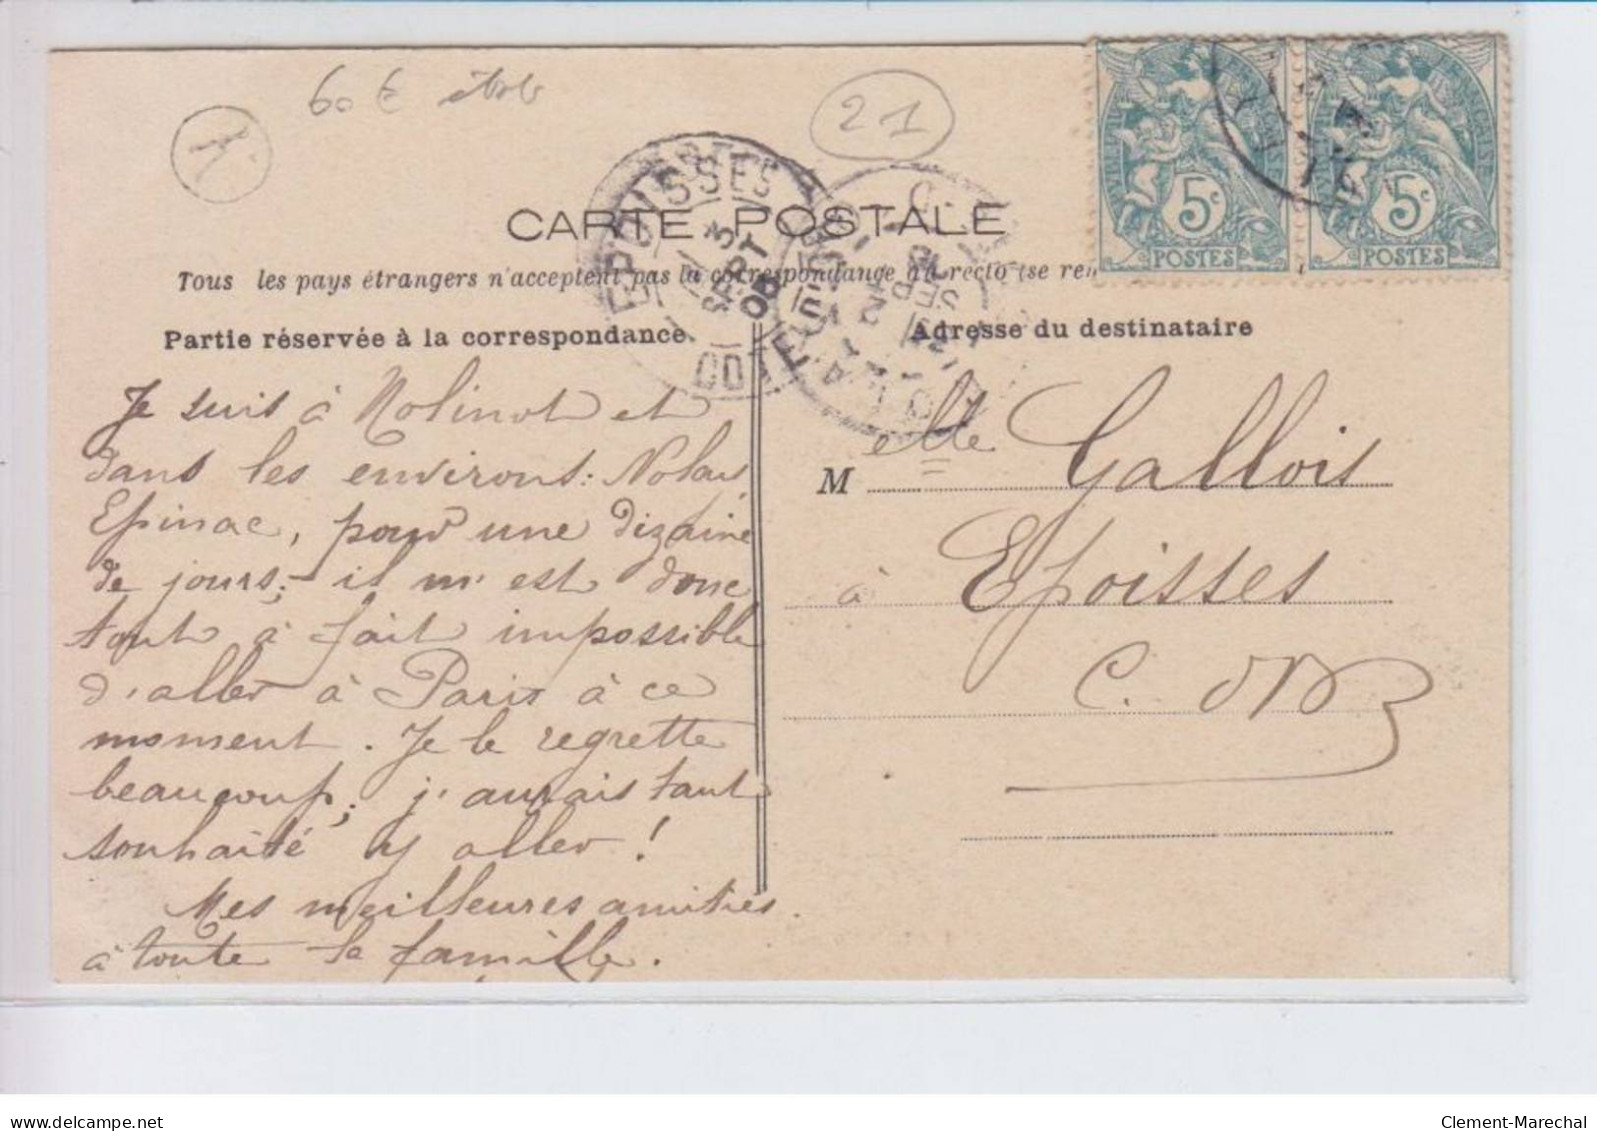 60 €
21
5c
POSTES
5c
POSTES
EPOISSES
3
SEPT
05
CARTE POSTALE
Tous les pays étrangers n'acceptent pas la correspondance au recto (se ren
Partie réservée à la correspondance.
Adresse du destinataire
Je suis à Molinot et
dans les environs : Nolay,
Epinac, pour une dizaine
de jours ; - il m'est donc
tout à fait impossible
d'aller à Paris à ce
moment. Je le regrette
beaucoup ; j'aurais tant
souhaité y aller !
Mes meilleures amitiés
à toute la famille.
Melle Gallois
à Epoisses
C. d'Or
Clement-Marechal